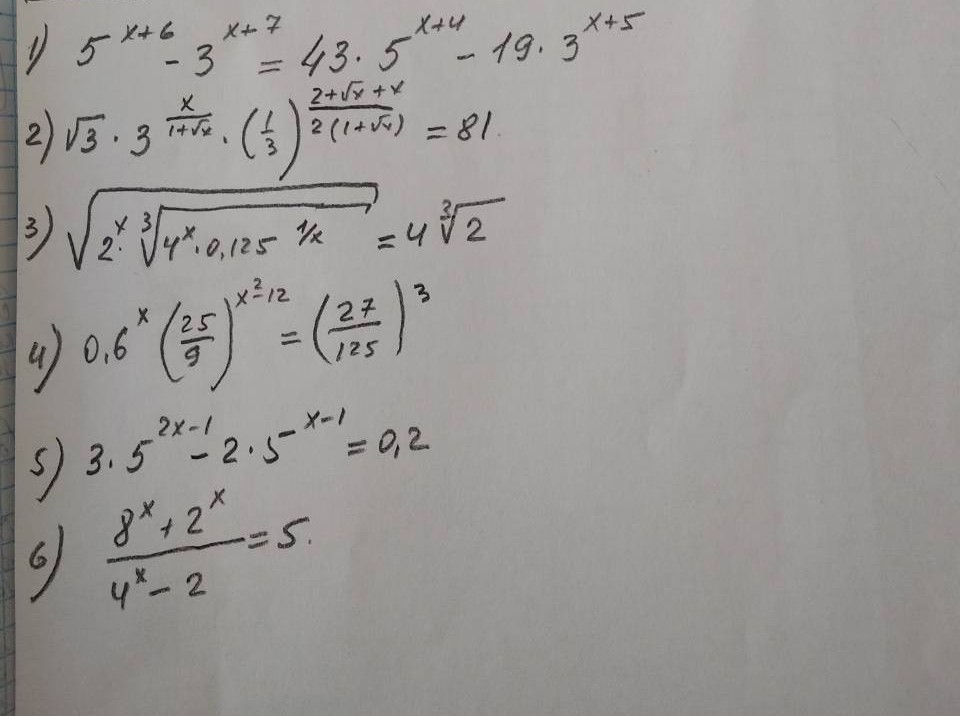 1) 5^{x+6} - 3^{x+7} = 43 · 5^{x+4} - 19 · 3^{x+5}
2) √3 · 3^{x/(1+√x)} · (1/3)^{(2+√x+x)/(2(1+√x))} = 81.
3) √(2^x · ∛(4^x · 0,125^{1/x})) = 4∛2
4) 0,6^x (25/9)^{x^2-12} = (27/125)^3
5) 3 · 5^{2x-1} - 2 · 5^{x-1} = 0,2
6) (8^x + 2^x)/(4^x - 2) = 5.